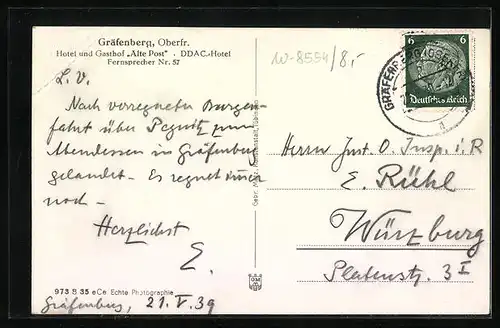 Gräfenberg, Oberfr.
Hotel und Gasthof „Alte Post" · DDAC.-Hotel
Fernsprecher Nr. 57
W-8554/8,-
L. V.
Nach verregneter Burgen-
fahrt über Pegnitz zum
Abendessen in Gräfenberg
gelandet - Es regnet immer
noch -
Herzlichst
E.
973 B 35 eCe Echte Photographie
Gräfenberg, 21. V. 39
6 6
Deutsches Reich
GRÄFENBERG
a
Herrn Just. O. Insp. i. R
E. Rühl
Würzburg
Platenstr. 3 I